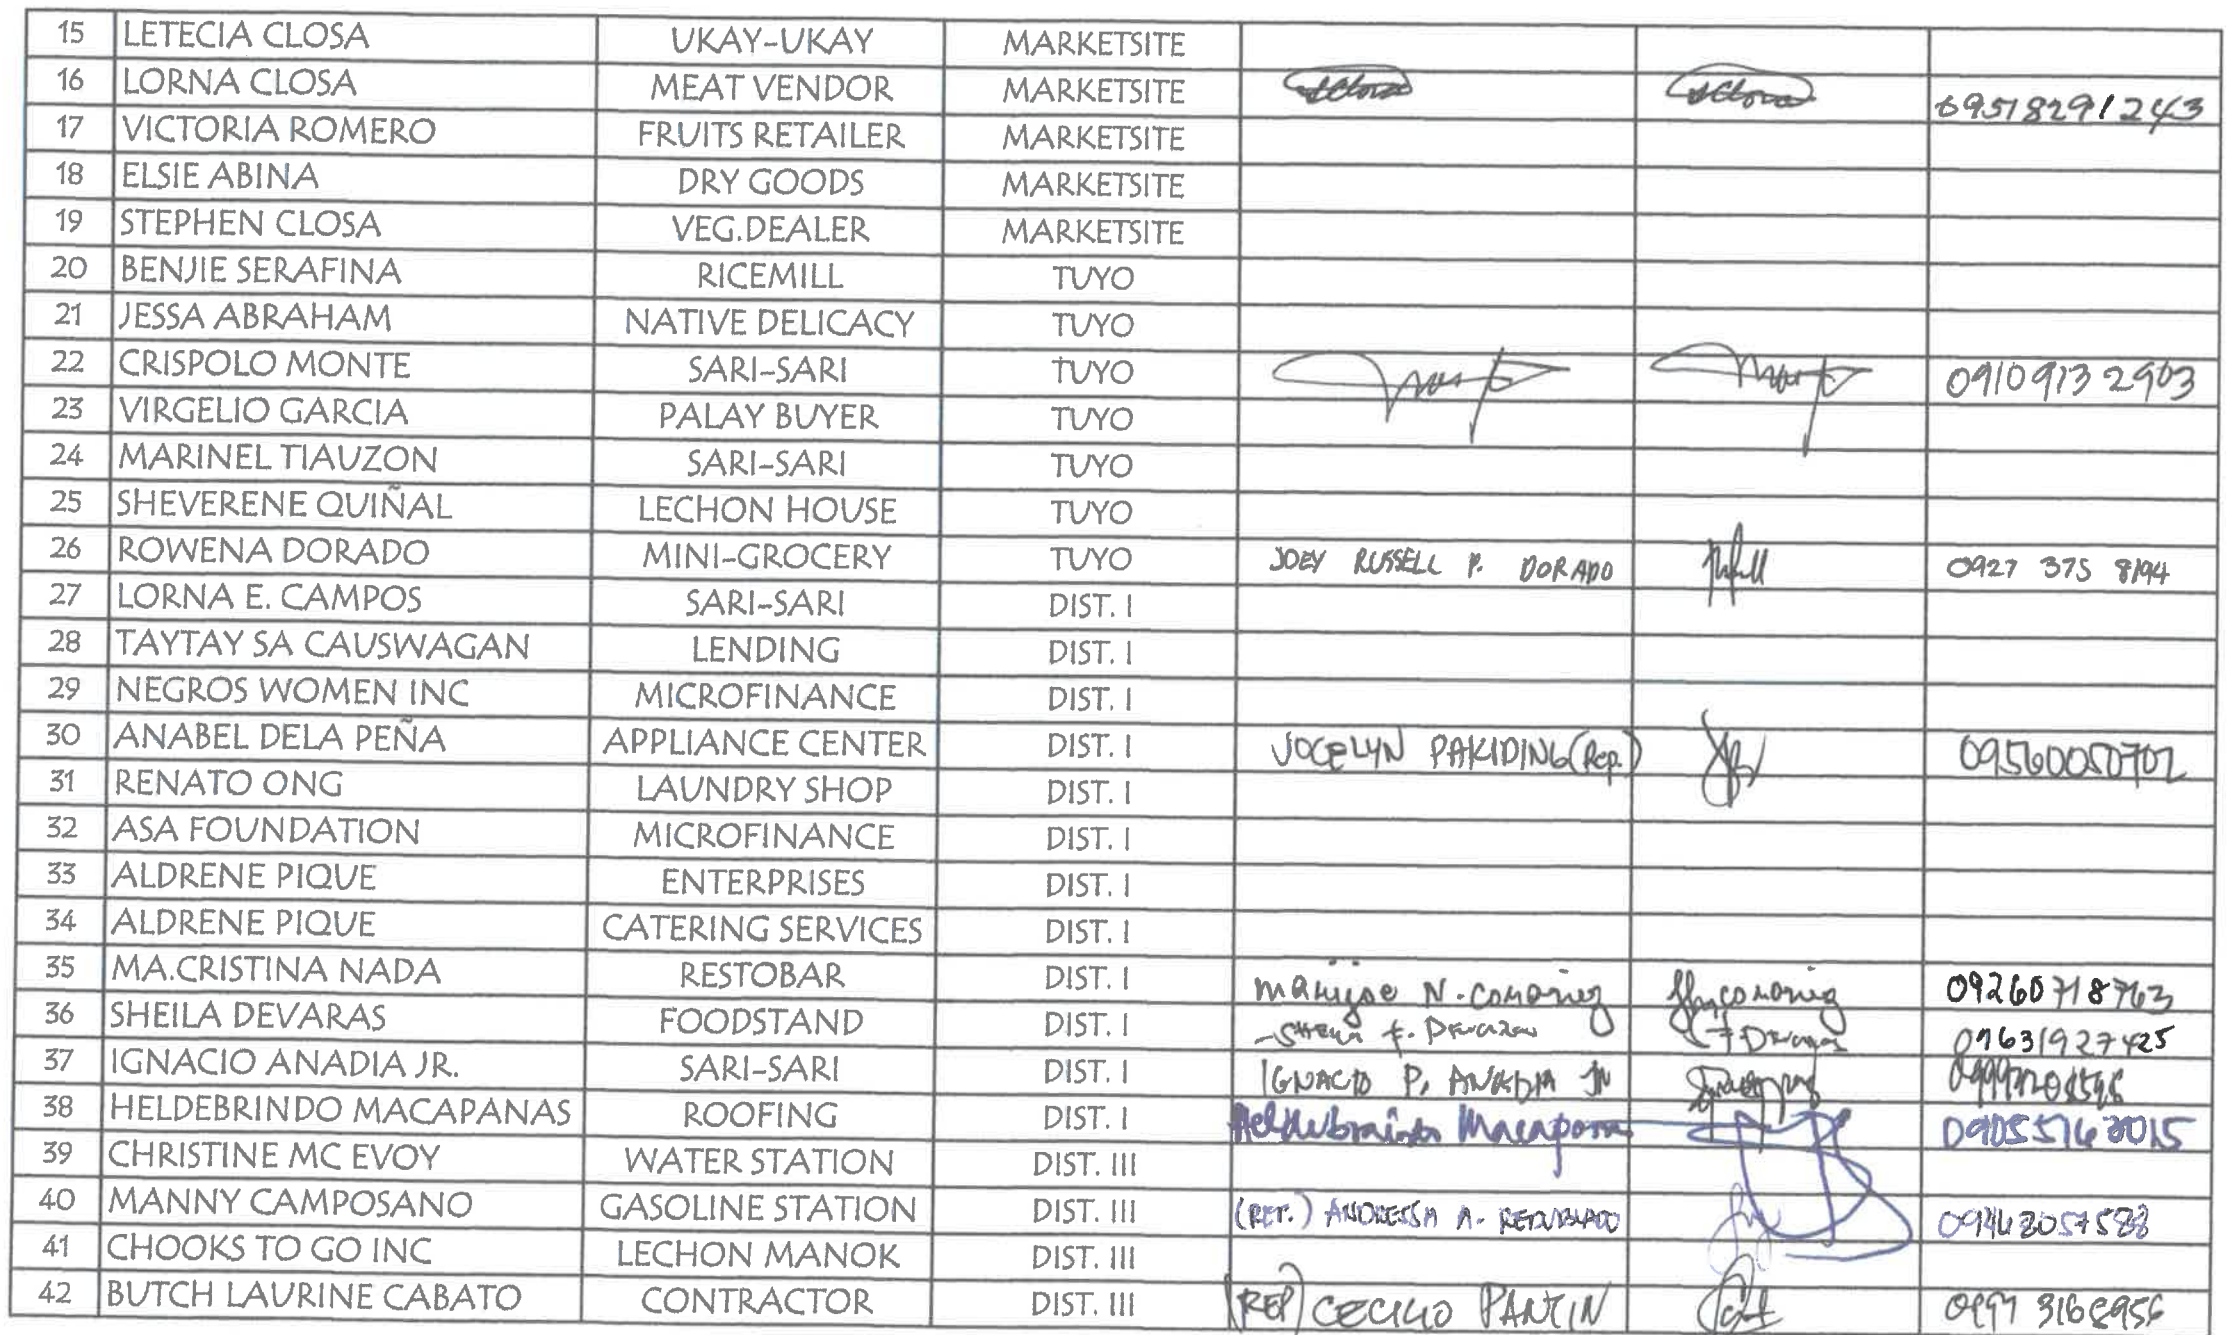 15 LETECIA CLOSA UKAY-UKAY MARKETSITE
16 LORNA CLOSA MEAT VENDOR MARKETSITE 09518291243
17 VICTORIA ROMERO FRUITS RETAILER MARKETSITE
18 ELSIE ABINA DRY GOODS MARKETSITE
19 STEPHEN CLOSA VEG.DEALER MARKETSITE
20 BENJIE SERAFINA RICEMILL TUYO
21 JESSA ABRAHAM NATIVE DELICACY TUYO
22 CRISPOLO MONTE SARI-SARI TUYO 09109132903
23 VIRGELIO GARCIA PALAY BUYER TUYO
24 MARINEL TIAUZON SARI-SARI TUYO
25 SHEVERENE QUIÑAL LECHON HOUSE TUYO
26 ROWENA DORADO MINI-GROCERY TUYO JOEY RUSSELL P. DORADO 0927 375 8194
27 LORNA E. CAMPOS SARI-SARI DIST. I
28 TAYTAY SA CAUSWAGAN LENDING DIST. I
29 NEGROS WOMEN INC MICROFINANCE DIST. I
30 ANABEL DELA PEÑA APPLIANCE CENTER DIST. I JOCELYN PAKIDING (Rep.) 09560050702
31 RENATO ONG LAUNDRY SHOP DIST. I
32 ASA FOUNDATION MICROFINANCE DIST. I
33 ALDRENE PIQUE ENTERPRISES DIST. I
34 ALDRENE PIQUE CATERING SERVICES DIST. I
35 MA.CRISTINA NADA RESTOBAR DIST. I 09260718763
36 SHEILA DEVARAS FOODSTAND DIST. I 09631927425
37 IGNACIO ANADIA JR. SARI-SARI DIST. I IGNACIO P. ANADIA JR
38 HELDEBRINDO MACAPANAS ROOFING DIST. I
39 CHRISTINE MC EVOY WATER STATION DIST. III
40 MANNY CAMPOSANO GASOLINE STATION DIST. III ANDRESSA A.
41 CHOOKS TO GO INC LECHON MANOK DIST. III
42 BUTCH LAURINE CABATO CONTRACTOR DIST. III (REP) CECILIO PANTIN